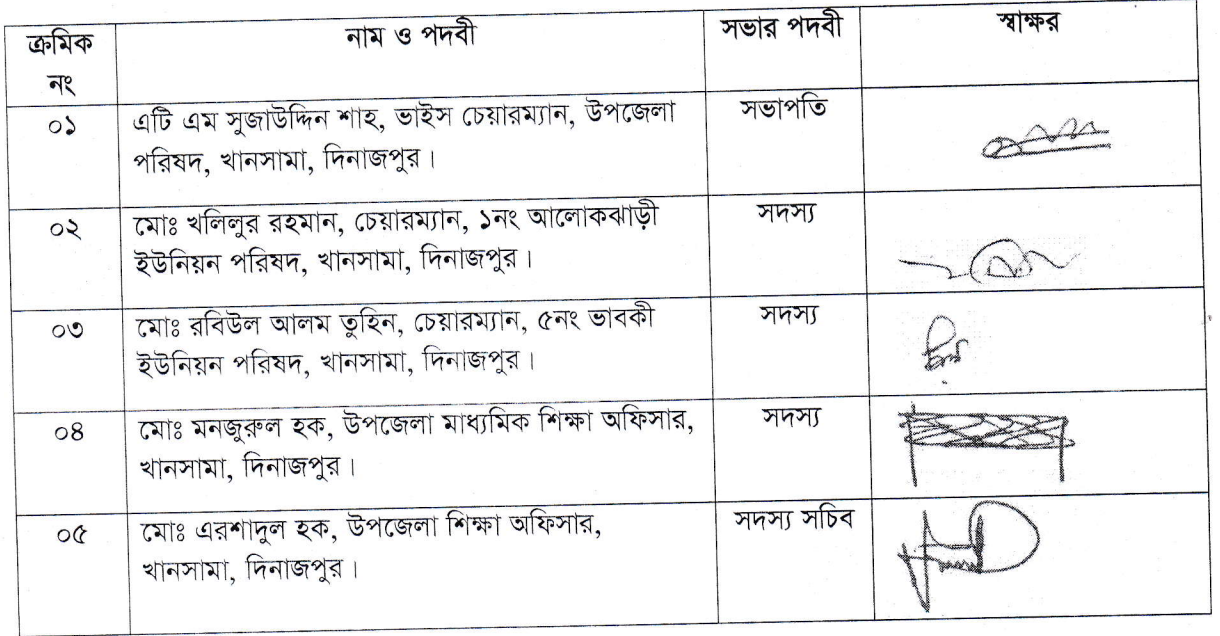 ক্রমিক নং নাম ও পদবী সভার পদবী স্বাক্ষর
০১ এটি এম সুজাউদ্দিন শাহ, ভাইস চেয়ারম্যান, উপজেলা সভাপতি
পরিষদ, খানসামা, দিনাজপুর।
০২ মোঃ খলিলুর রহমান, চেয়ারম্যান, ১নং আলোকঝাড়ী সদস্য
ইউনিয়ন পরিষদ, খানসামা, দিনাজপুর।
০৩ মোঃ রবিউল আলম তুহিন, চেয়ারম্যান, ৫নং ভাবকী সদস্য
ইউনিয়ন পরিষদ, খানসামা, দিনাজপুর।
০৪ মোঃ মনজুরুল হক, উপজেলা মাধ্যমিক শিক্ষা অফিসার, সদস্য
খানসামা, দিনাজপুর।
০৫ মোঃ এরশাদুল হক, উপজেলা শিক্ষা অফিসার, সদস্য সচিব
খানসামা, দিনাজপুর।